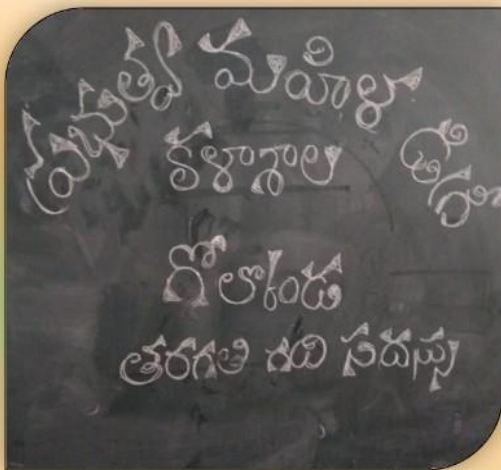 ప్రభుత్వ మహిళా డిగ్రీ
కళాశాల
గోల్కొండ
తరగతి గది సదస్సు